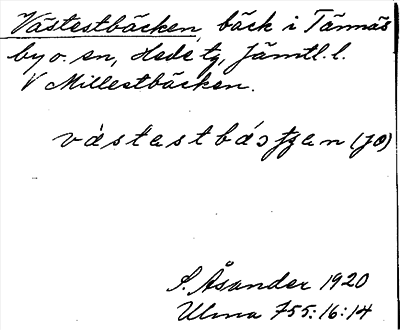 Västestbäcken, bäck i Tännäs
by o. sn, Hede tg, Jämtl. l.
V Millestbäcken.
västastbäɔtjan (JÖ)
S. Åsander 1920
Ulma 755:16:14